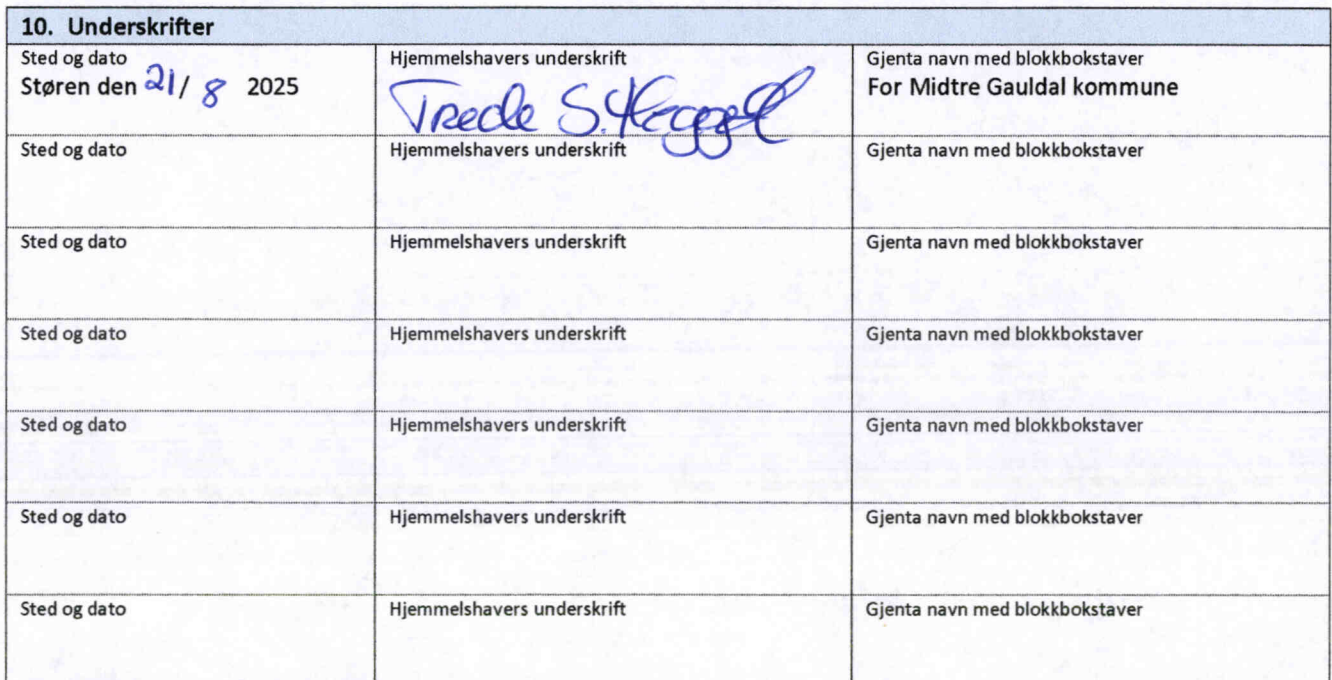 10. Underskrifter
Sted og dato Hjemmelshavers underskrift Gjenta navn med blokkbokstaver
Støren den 21/ 8 2025 For Midtre Gauldal kommune
Sted og dato Hjemmelshavers underskrift Gjenta navn med blokkbokstaver
Sted og dato Hjemmelshavers underskrift Gjenta navn med blokkbokstaver
Sted og dato Hjemmelshavers underskrift Gjenta navn med blokkbokstaver
Sted og dato Hjemmelshavers underskrift Gjenta navn med blokkbokstaver
Sted og dato Hjemmelshavers underskrift Gjenta navn med blokkbokstaver
Sted og dato Hjemmelshavers underskrift Gjenta navn med blokkbokstaver